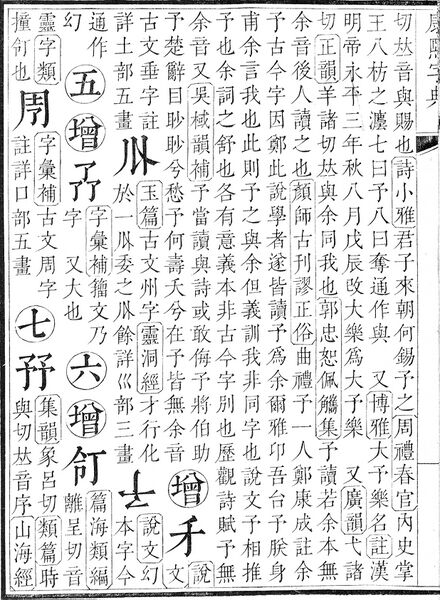 切𠀤音與賜也詩小雅君子來朝何錫予之周禮春官內史掌
王八枋之灋七曰予八曰奪通作與 又博雅大予樂名註漢
明帝永平三年秋八月戊辰改大樂爲大予樂 又廣韻弋諸
切正韻羊諸切𠀤與余同我也郭忠恕佩觿集予讀若余本無
余音後人讀之也顏師古刊謬正俗曲禮予一人鄭康成註余
予古今字因鄭此說學者遂皆讀予爲余爾雅卬吾台予朕身
甫余言我也此則予之與余但義訓我非同字也說文予相推
予也余詞之舒也各有意義本非古今字別也歷觀詩賦予無
余音又吳棫韻補予當讀與詩或敢侮予將伯助
予楚辭目眇眇兮愁予何壽夭兮在予皆無余音
增
說
文
古文垂字註
詳土部五畫
玉篇古文州字靈洞經才行化
於一委之餘詳巛部三畫
說文幻
本字今
通作
幻
五
增
字彙補籀文乃
字 又大也
六
增
篇海類編
離呈切音
靈字類
撞也
字彙補古文周字
註詳口部五畫
七
集韻象呂切類篇時
與切𠀤音序山海經